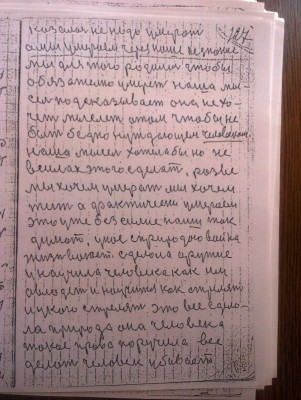 127
казалось не надо умерат
а мы умираем через наше незнание
мы для этого родилис чтобы
обязательно умерет наша мы
сел подсказывает она не хо
чет мыслет о том чтобы не
быт бедно нуждающем человеком
наша мысел хотела бы но не
в силах этого сделат, разве
мы хочем умерат мы хочем
жит а фрактически умераем
это уже бессилие нашу так
думат, у нас с природою война
она сделала оружие
и научила человека как им
владет и научит как стрелят
и у кого стрелят это все сдела
ла природа она человека
такое право поручила все
делат человек убивает